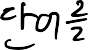 단어 2/2